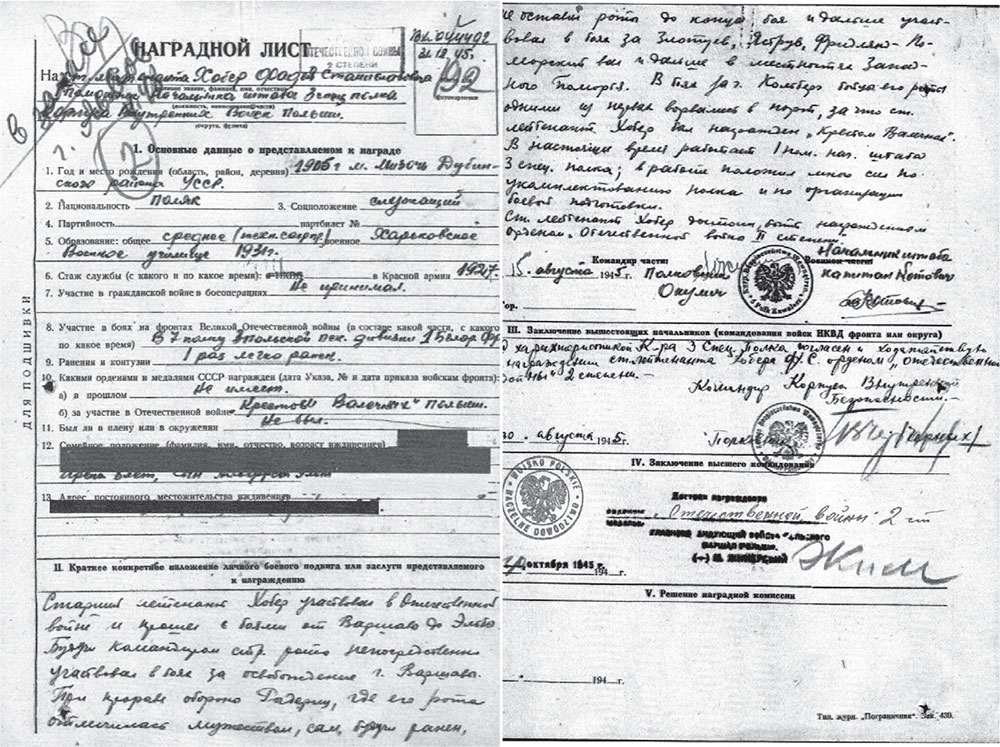 НАГРАДНОЙ ЛИСТ
ОТЕЧЕСТВЕННОЙ ВОЙНЫ
2 СТЕПЕНИ
21.12.45.
На ст. лейтенанта Хобер Станиславовича
Помощник начальника штаба 3 спец полка
Корпуса Внутренних Войск Польши.
(округа, фронта)
1. Основные данные о представляемом к награде
1. Год и место рождения (область, район, деревня) 1905 г. м. Мизоч Дубин-
ского района УССР.
2. Национальность поляк 3. Соцположение служащий
4. Партийность партбилет №
5. Образование: общее среднее военное Харьковское
Военное училище 1931 г.
6. Стаж службы (с какого и по какое время): НКВД в Красной армии 1927.
7. Участие в гражданской войне в босоперациях Не принимал.
8. Участие в боях на фронтах Великой Отечественной войны (в составе какой части, с какого
по какое время) В 7 полку польской пех. дивизии 1 Белор. Фр.
9. Ранения и контузии 1 раз легко ранен.
10. Какими орденами и медалями СССР награжден (дата Указа, № и дата приказа войскам фронта):
а) в прошлом Не имеет.
б) за участие в Отечественной войне "Крестом Валечных" Польши.
11. Был ли в плену или в окружении Не был.
12. Семейное положение (фамилия, имя, отчество, возраст иждивенцев)
13. Адрес постоянного местожительства иждивенцев
ДЛЯ ПОДШИВКИ
II. Краткое конкретное изложение личного боевого подвига или заслуги представляемого
к награждению
Старший лейтенант Хобер участвовал в Отечественной
войне и прошел с боями от Варшавы до Эльбы
Будучи командиром стр. роты непосредственно
участвовал в боях за освобождение г. Варшава.
При прорыве обороны где его рота
отличилась мужеством, сам, будучи ранен,
не оставил роты до конца боя и дальше участ-
вовал в боях за Злотуев, Яструв, Фридлянд-По-
морский и дальше в местностях Запад-
ного Поморья. В боях за г. Кольберг бойцы его роты
одними из первых ворвались в порт, за что ст.
лейтенант Хобер был награжден "Крестом Валечных".
В настоящее время работает 1 пом. нач. штаба
3 спец. полка; в работе положил много сил по
укомплектованию полка и по организации
боевой подготовки.
Ст. лейтенант Хобер достоин быть награжденным
орденом Отечественной войны II степени.
Командир части: Начальник штаба
Военной части:
15 августа 1945 г. Полковник капитан Котович
Окулич
III. Заключение вышестоящих начальников (командования войск НКВД фронта или округа)
С характеристикой К-ра 3 Спец. Полка согласен и ходатайствую
о награждении ст. лейтенанта Хобера Ф.С. орденом "Отечественной
войны" 2 степени.
Командир Корпуса Внутренней
Безопасности
30 августа 1945
IV. Заключение высшего командования
WOJSKO POLSKIE
NACZELNE DOWÓDZTWO
Достоин награждения
орденом "Отечественной войны 2 ст
медалью
октября 1945 г. 194 г.
V. Решение наградной комиссии
194 г.
Тип. журн. „Пограничник“. Зак. 430.